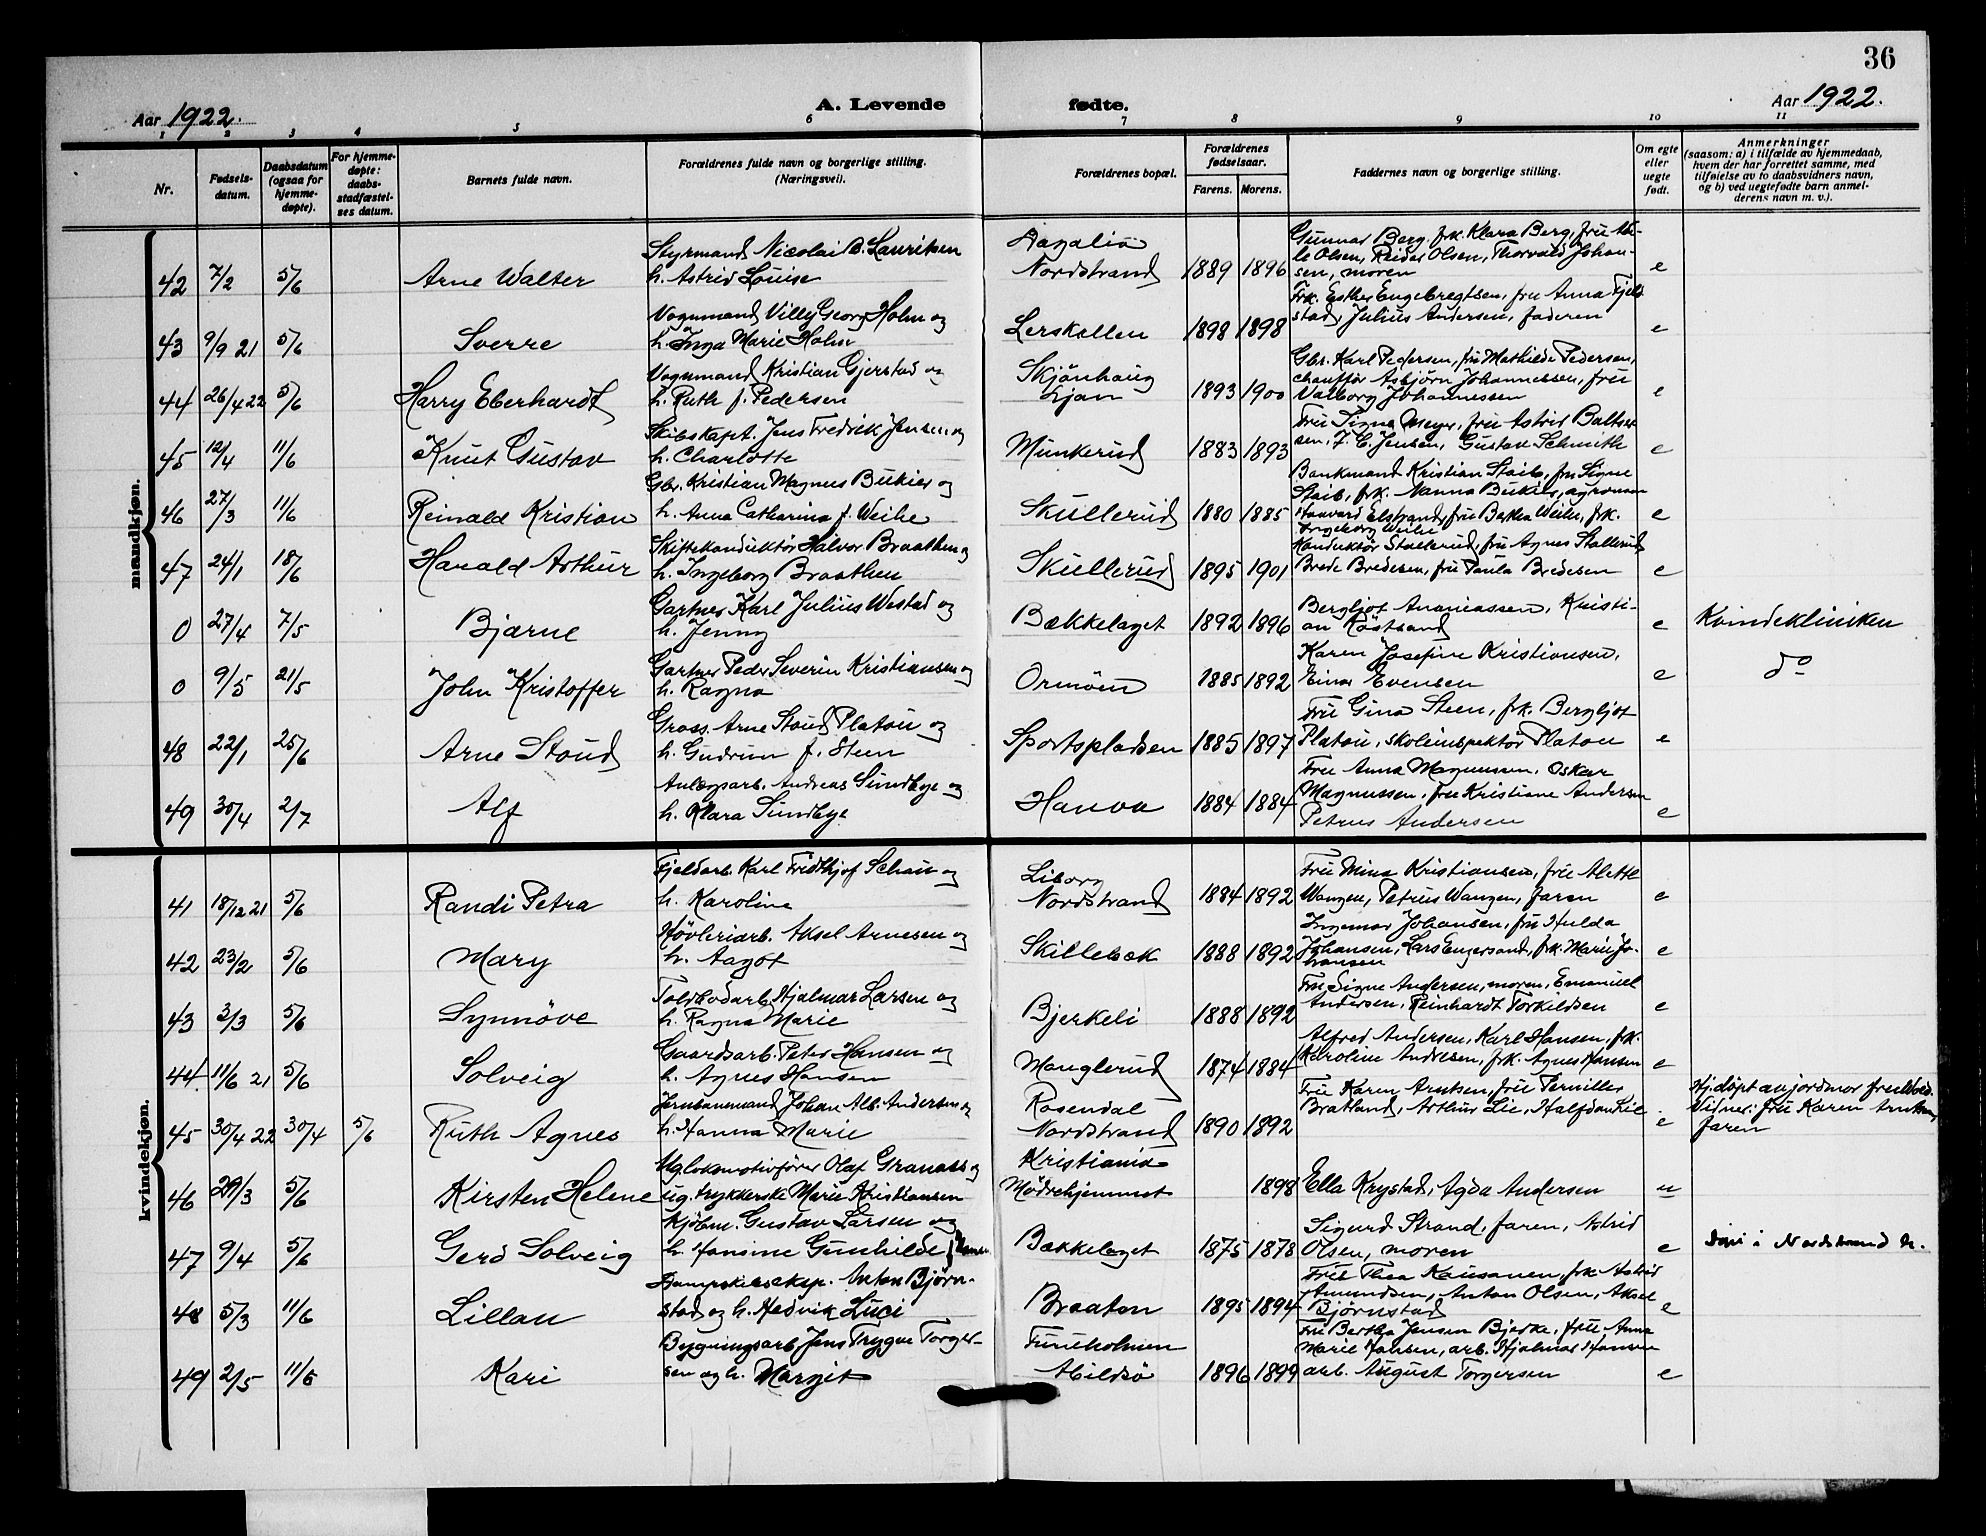 36
Aar 1922.
A. Levende
fødte.
Aar 1922.
1 2 3 4 5 6 7 8 9 10 11
Nr.
Fødsels-
datum.
Daabsdatum
(ogsaa for
hjemme-
døpte).
For hjemme-
døpte:
daabs-
stadfæstel-
ses datum.
Barnets fulde navn.
Forældrenes fulde navn og borgerlige stilling.
(Næringsvei).
Forældrenes bopæl.
Forældrenes
fødselsaar.
Farens. Morens.
Faddernes navn og borgerlige stilling.
Om egte
eller
uegte
født.
Anmerkninger
(saasom: a) i tilfælde av hjemmedaab,
hvem der har forrettet samme, med
tilføielse av to daabsvidners navn,
og b) ved uegtefødte barn anmel-
derens navn m. v.).
mandkjøn.
42 7/2 5/6 Arne Walter
Styrmand Nicolai B. Lauritsen
h. Astrid Louise
Nordstrand 1889 1896
Gunnar Berg, frk. Klara Berg, fru
Olsen, Reidar Olsen, Thorvald Johan-
sen, moren
e
43 9/9 21 5/6 Sverre
Vognmand Villy Georg Holm og
h. Inga Marie Holm
Lerskallen 1898 1898
Frk. Esther Engebregtsen, fru Anna Fjeld
stad, Julius Andersen, faderen
e
44 26/4 22 5/6 Harry Eberhardt
Vognmand Kristian Gjerstad og
h. Ruth f. Pedersen
Skjønhaug
Ljan 1893 1900
Gbr. Karl Pedersen, fru Mathilde Pedersen,
chauffør Asbjørn Johannessen, fru
Valborg Johannessen
e
45 12/4 11/6 Knut Gustav
Skibskapt. Jens Fredrik Jensen og
h. Charlotte
Munkerud 1883 1893
Fru Signe Meyer, fru Astrid Balters
sen, J. C. Jensen, Gustav Schmith
e
46 27/3 11/6 Reinald Kristian
Gbr. Kristian Magnus Bukier og
h. Anna Catharina f. Weihe
Skullerud 1880 1885
Bankmand Kristian Staib, fru Signe
Staib, frk. Nanna Bukier, agronom
Haavard Elstrand, fru Bertha Weihe, frk.
Ingeborg Weihe
e
47 24/1 18/6 Harald Arthur
Skiftekonduktør Halvor Braathen og
h. Ingeborg Braathen
Skullerud 1895 1901
Konduktør Stallerud, fru Agnes Stallerud
Brede Bredesen, fru Paula Bredesen
e
0 27/4 7/5 Bjarne
Gartner Karl Julius Westad og
h. Jenny
Bækkelaget 1892 1896
Bergljot Ananiassen, Kristi-
an Røstsand
e
Kvindekliniken
0 9/5 21/5 John Kristoffer
Gartner Peder Severin Kristiansen og
h. Ragna
Ormøen 1885 1892
Karen Josefine Kristiansen,
Einar Evensen
e
do
48 22/1 25/6 Arne Stoud
Gross. Arne Stoud Platou og
h. Gudrun f. Steen
Sportspladsen 1885 1897
Fru Gina Steen, frk. Bergljot
Platou, skoleinspektør Platou
e
49 30/4 2/7 Alf
Anlægsarb. Andreas Sundbye og
h. Klara Sundbye
1884 1884
Fru Anna Magnussen, Oskar
Magnussen, fru Kristiane Andersen
Petrus Andersen
e
kvindekjøn.
41 18/12 21 5/6 Randi Petra
Fjeldarb. Karl Fridthjof Schau og
h. Karoline
Liborg
Nordstrand 1884 1892
Fru Mina Kristiansen, fru Alette
Wangen, Petrus Wangen, faren
e
42 23/2 5/6 Mary
Høvleriarb. Aksel Arnesen og
h. Aagot
Skillebæk 1888 1892
Ingemar Johansen, fru Hulda
Johansen, Lars Engersand, frk. Marie Jo-
hansen
e
43 3/3 5/6 Synnøve
Toldbodarb. Hjalmar Larsen og
h. Ragna Marie
Bjerkeli 1888 1892
Fru Signe Andersen, moren, Emanuel
Andersen, Reinhardt Torkildsen
e
44. 11/6 21 5/6 Solveig
Gaardsarb. Peter Hansen og
h. Agnes Hansen
Manglerud 1874 1884
Alfred Andersen, Karl Hansen, frk.
Karoline Andresen, frk. Agnes Hansen
e
45 30/4 22 30/4 5/6 Ruth Agnes
Jernbanemand Johan Alb. Andersen og
h. Hanna Marie
Rosendal
Nordstrand 1890 1892
Fru Karen Arntsen, fru Pernille
Bratland, Arthur Lie, Halfdan Lie
e
Hj. døpt av jordmor fru
Vidner: fru Karen Arntsen,
faren
46 29/3 5/6 Kirsten Helene
Ug lokomotivfører Olaf Granaas og
ug. trykkerske Marie Kristiansen
Kristiania
Mødrehjemmet 1898
Ella Krystad, Agda Andersen
u
47 9/4 5/6 Gerd Solveig
Kjøbm. Gustav Larsen og
h. Hansine Gunhilde
Bækkelaget 1875 1878
Sigurd Strand, faren, Astrid
Olsen, moren
e
Døpt i Nordstrand k.
48 5/3 11/6 Lillan
Dampskibsexp. Anton Bjørn-
stad og h. Hedvik Luci
Braaten 1895 1894
Frue Thea Kausanen, frk. Astrid
Amundsen, Anton Olsen, Aksel
Bjørnstad
e
49 2/5 11/6 Kari
Bygningsarb. Jens Trygve Torger-
sen og h. Margit
Furuholmen
Abildsø 1896 1899
Fru Bertha Jensen Bjerke, fru Anna
Marie Hansen, arb. Hjalmar Hansen
arb. August Torgersen
e